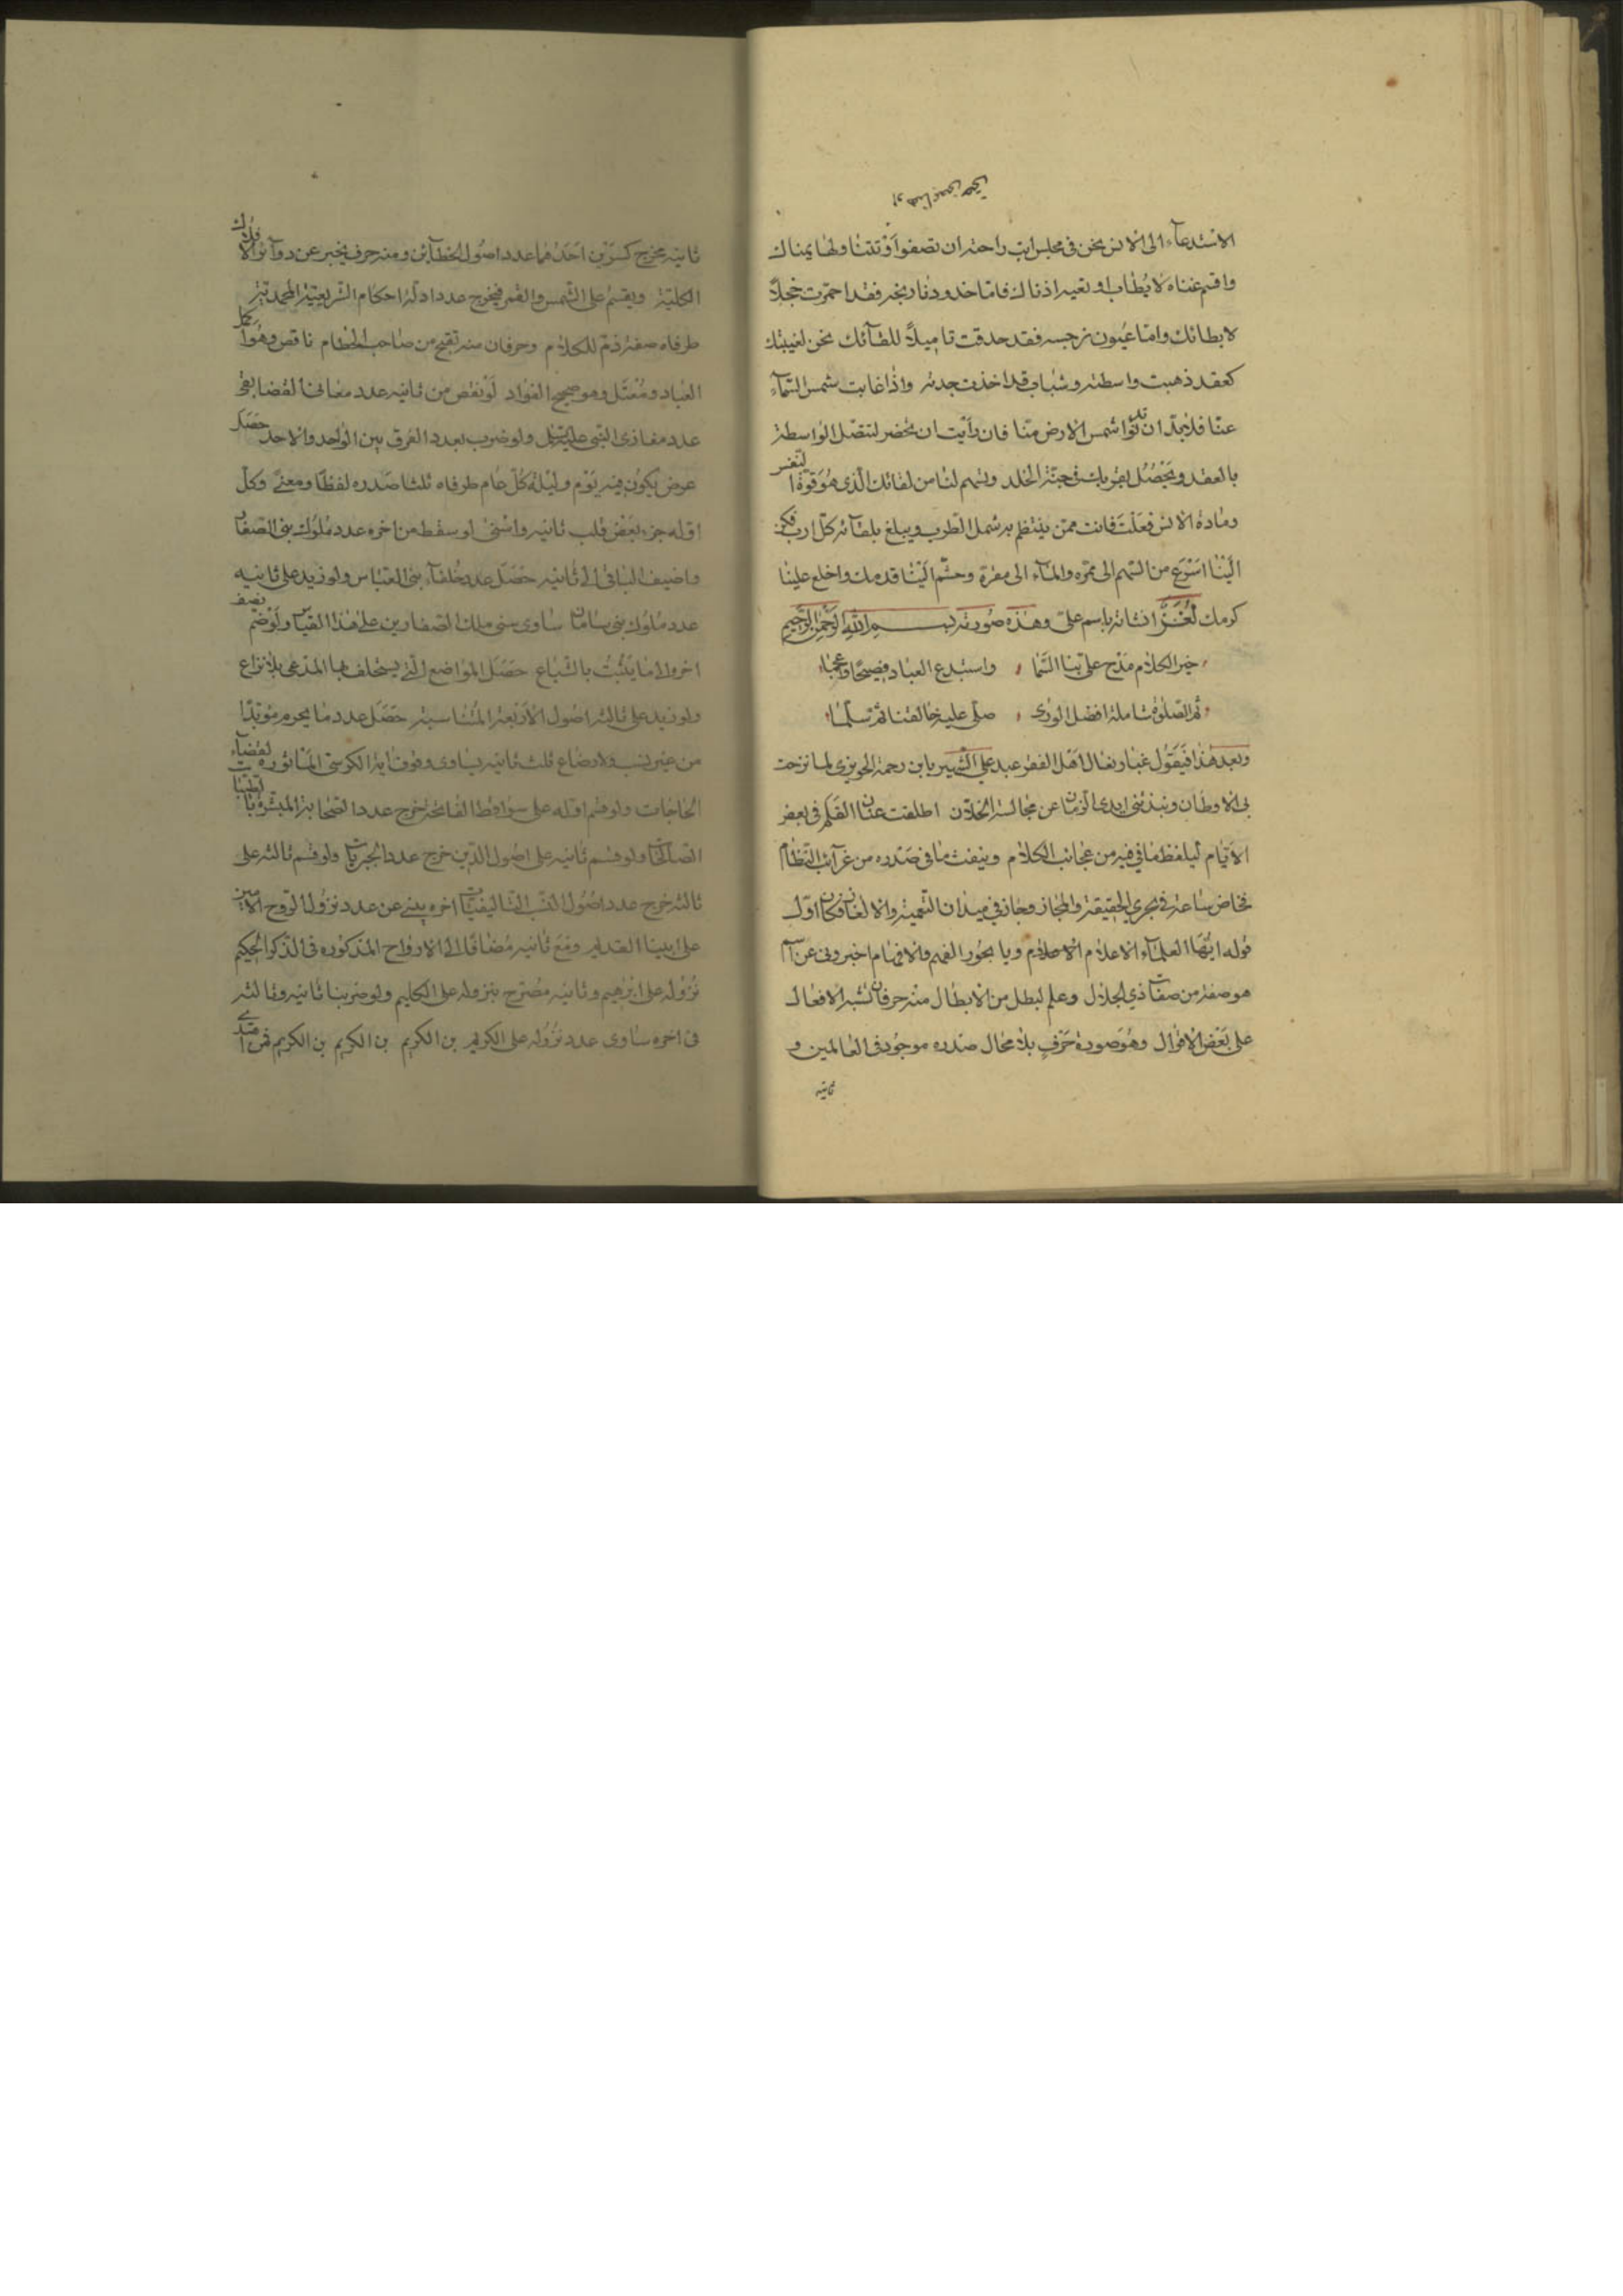 الاستدعاء الى الانس نحن في مجلس ابت راحته ان تصفوا او تتناولها يمناك
واقسم غناه لا يطاب او تعيه اذناك فاما خدود نارنجه فقد احمرت خجلاً
لابطائك واما عيون نرجسه فقد حدقت تاميلاً للقائك نحن لغيبتك
كعقد ذهبت واسطته وشباب قد اخذت جدته واذا غابت شمس السماء
عنا فلا بد ان تدنوا شمس الارض منا فان رأيت ان تحضر لتتصل الواسطة
بالعقد ويحصل بقربك في جنة الخلد وتسهم لنا من لقائك الذي هو قوة النفس
ومادة الانس فعلت فانت ممن ينتظم به شمل الطرب ويبلغ بلقائه كل ارب فكن
الينا اسرع من السهم الى ممره والماء الى مقره وجشم الينا قدمك واخلع علينا
كرمك لغز انشاته باسم علي وهذه صورته بسم الله الرحمن الرحيم
خير الكلام مدح على بنا السما واستبدع العباد فصيحا واعجما
ثم الصلوة شاملة افضل الورى صلى عليه خالقنا ثم سلما
وبعد هذا فيقول غبار نعال اهل الفقر عبد علي الشهير بابن رحمة الحويزي لما نزحت
بي الاوطان ونبذتني ايدي الزمان عن مجالسة الخلان اطلقت عنان القلم في بعض
الايام ليلفظ ما في فيه من عجائب الكلام وينفث ما في صدره من غرائب النظام
فخاض ساعة في بحري الحقيقة والمجاز وجاز في ميدان التعمية والالغاز فكان اول
قوله ايها العلماء الاعلام الاحلام ويا بحور الفهم والافهام اخبروني عن اسم
هو صفة من صفات ذي الجلال وعلم لبطل من الابطال منه حرفان تشبه الافعال
على بعض الاقوال وهو صورة حرف بلا محال صدره موجود في العالمين و
ثانيه
ثانيه مخرج كسرين احدهما عدد اصول الخطائين ومنه حرف يخبر عن دوائر الافلاك
الكلية ويقسم على الشمس والقمر فيخرج عدد ادلة احكام الشريعة المحمدية
طرفاه صفة ذم للكلام وحرفان منه تقبح من صاحب الطعام ناقص وهو اكمل
العباد ومعتل وهو صحيح الفؤاد لو نقص من ثانيه عدد معاني القضا بقي
عدد مغازي النبي عليه السلام ولو ضرب بعدد الفرق بين الواحد والاحد حصل
عرض يكون فيه يوم وليلة كل عام طرفاه ثلثا صدره لفظا ومعنى وكل
اوله جزء بعض قلب ثانيه واستحى لو سقط من اخره عدد ملوك بني الصفار
واضيف الباقي الى ثانيه حصل عدد خلفاء بني العباس ولو زيد على ثانيه نصف
عدد ملوك بني سامان ساوى سني ملك الصفارين على هذا القياس ولو ضم
اخره الى ما يثبت بالشياع حصل المواضع التي يستحلف بها المدعي بلا نزاع
ولو زيد على ثالثه اصول الاربعة المتناسبة حصل عدد ما يحرم مؤبدا
من غير نسب ولا رضاع ثلث ثانيه يساوي وقوف اية الكرسي المأثورة لقضاء
الحاجات ولو قسم اوله على سواقط الفاتحة خرج عدد الصحابة المبشرة بالطيبات
الصالحات ولو قسم ثانيه على اصول الدين خرج عدد المجربات ولو قسم ثالثه على
ثالثه خرج عدد اصول النسب التاليفيات اخره ينبئ عن عدد نزول الروح الامين
على ابينا القديم ومع ثانيه مضافا الى الارواح المذكورة في الذكر الحكيم
نزوله على ابرهيم وثانيه مصرح بنزوله على الكليم ولو ضربنا ثانيه وثالثه
في اخره ساوى عدد نزوله على الكريم بن الكريم بن الكريم بن الكريم